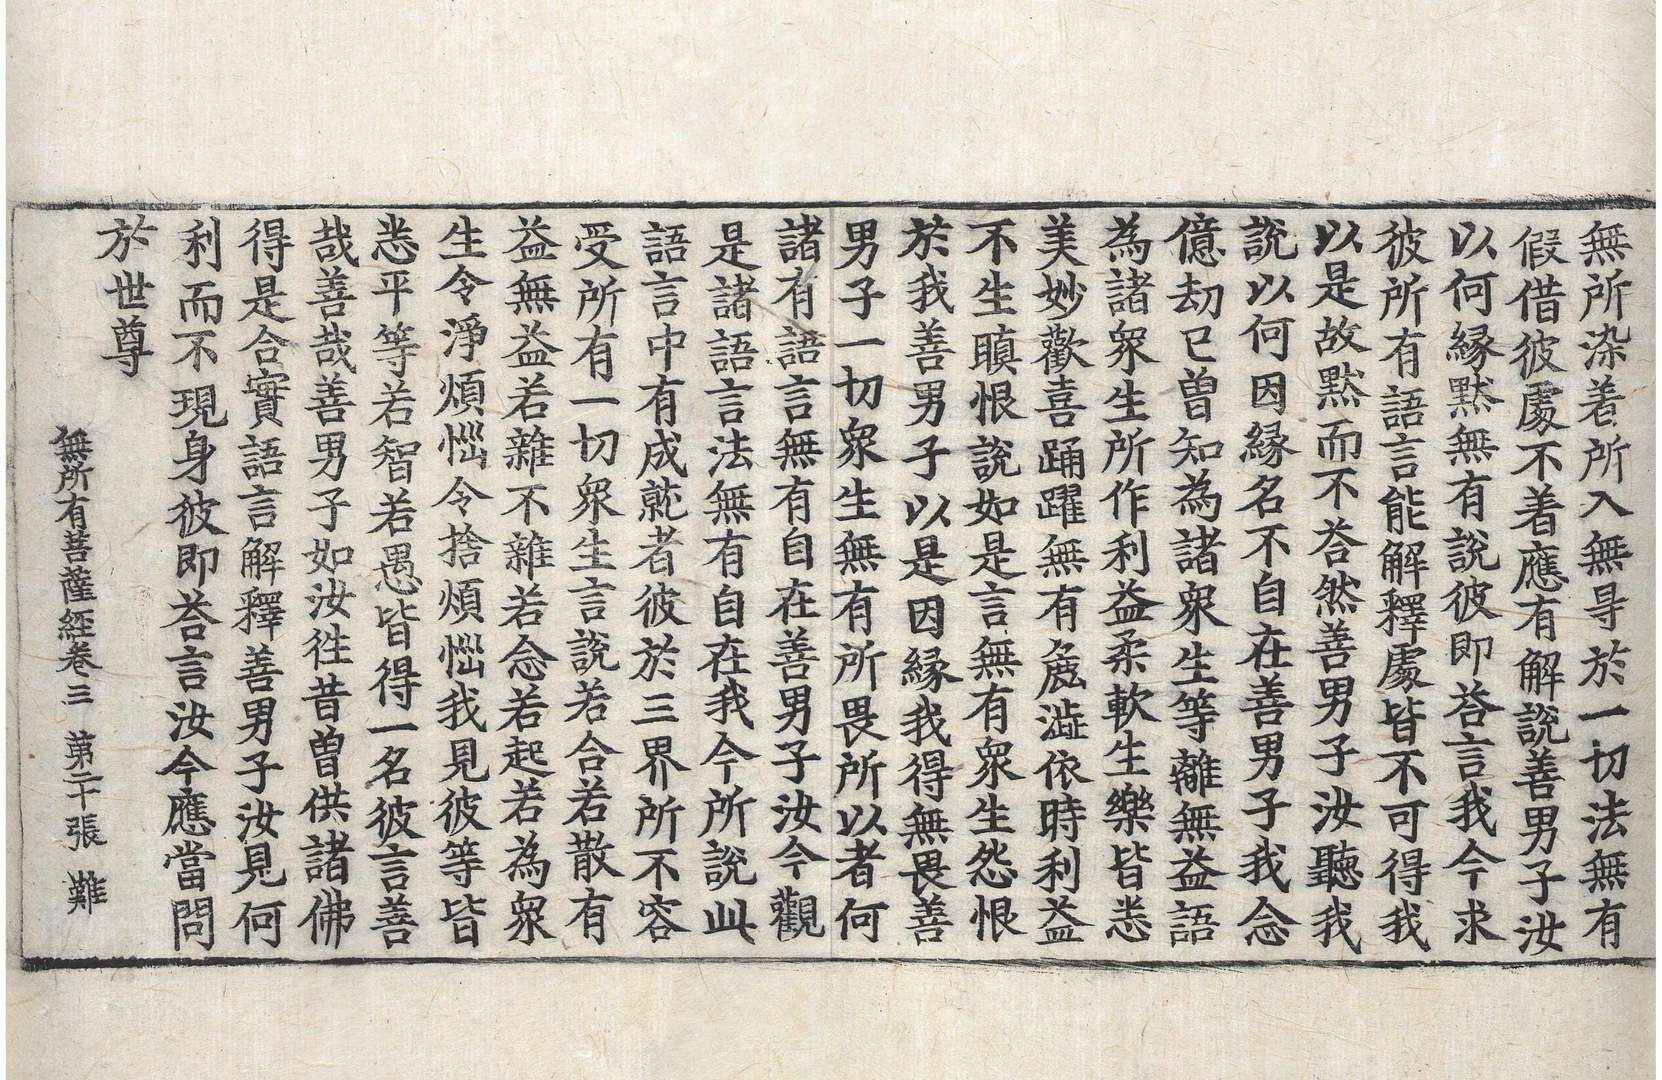 無所染着所入無㝵於一切法無有
假借彼處不着應有解說善男子汝
以何緣黙無有說彼即荅言我今求
彼所有語言能解釋處皆不可得我
以是故黙而不荅然善男子汝聽我
說以何因緣名不自在善男子我念
億劫已曾知為諸衆生等離無益語
為諸衆生所作利益柔軟生樂皆悉
美妙歡喜踊躍無有麁澁依時利益
不生瞋恨說如是言無有衆生怨恨
於我善男子以是因緣我得無畏善
男子一切衆生無有所畏所以者何
諸有語言無有自在善男子汝今觀
是諸語言法無有自在我今所說此
語言中有成就者彼於三界所不容
受所有一切衆生言說若合若散有
益無益若雜不雜若念若起若為衆
生令淨煩惱令捨煩惱我見彼等皆
悉平等若智若愚皆得一名彼言善
哉善哉善男子如汝徃昔曾供諸佛
得是合實語言解釋善男子汝見何
利而不現身彼即荅言汝今應當問
於世尊
無所有菩薩經卷三 第二十張 難